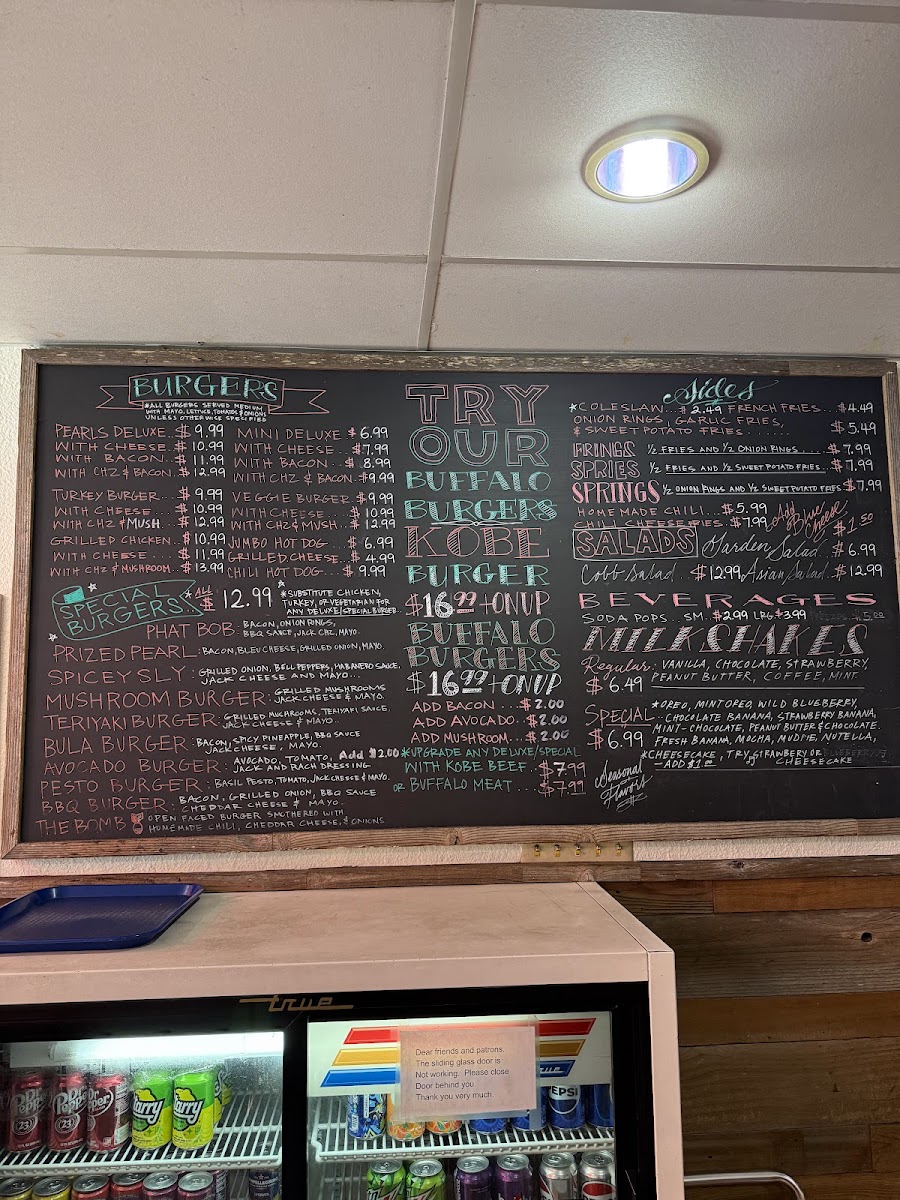 BURGERS
*ALL BURGERS SERVED MEDIUM
WITH MAYO, LETTUCE, TOMATOES & ONIONS
UNLESS OTHERWISE SPECIFIED
PEARLS DELUXE..$ 9.99
WITH CHEESE..$ 10.99
WITH BACON..$ 11.99
WITH CHZ & BACON.$ 12.99
TURKEY BURGER...$ 9.99
WITH CHEESE...$ 10.99
WITH CHZ & MUSH..$ 12.99
GRILLED CHICKEN..$ 10.99
WITH CHEESE....$ 11.99
WITH CHZ & MUSHROOM..$ 13.99
MINI DELUXE $ 6.99
WITH CHEESE..$7.99
WITH BACON..$ 8.99
WITH CHZ & BACON.$9.99
VEGGIE BURGER $9.99
WITH CHEESE...$ 10.99
WITH CHZ & MUSH..$ 12.99
JUMBO HOT DOG...$ 6.99
GRILLED CHEESE..$ 4.99
CHILI HOT DOG...$ 9.99
SPECIAL
BURGERS..
ALL
$ 12.99
*SUBSTITUTE CHICKEN,
TURKEY, OR VEGETARIAN FOR
ANY DELUXE/SPECIAL BURGER...
PHAT BOB: BACON, ONION RINGS,
BBQ SAUCE, JACK CHZ, MAYO.
PRIZED PEARL: BACON, BLEU CHEESE, GRILLED ONION, MAYO.
SPICEY SLY: GRILLED ONION, BELL PEPPERS, HABANERO SAUCE,
JACK CHEESE AND MAYO...
MUSHROOM BURGER: GRILLED MUSHROOMS
JACK CHEESE & MAYO.
TERIYAKI BURGER: GRILLED MUSHROOMS, TERIYAKI SAUCE,
JACK CHEESE & MAYO.
BULA BURGER: BACON, SPICY PINEAPPLE, BBQ SAUCE
JACK CHEESE, MAYO.
AVOCADO BURGER: AVOCADO, TOMATO, Add $2.00
JACK AND RACH DRESSING
PESTO BURGER: BASIL PESTO, TOMATO, JACK CHEESE & MAYO.
BBQ BURGER: BACON, GRILLED ONION, BBQ SAUCE
CHEDDAR CHEESE & MAYO.
THE BOMB OPEN FACED BURGER SMOTHERED WITH
HOMEMADE CHILI, CHEDDAR CHEESE, & ONIONS
TRY
OUR
BUFFALO
BURGERS
KOBE
BURGER
$16.99 + ON UP
BUFFALO
BURGERS
$16.99 + ON UP
ADD BACON...$2.00
ADD AVOCADO.$2.00
ADD MUSHROOM..$2.00
*UPGRADE ANY DELUXE/SPECIAL
WITH KOBE BEEF..$7.99
OR BUFFALO MEAT...$7.99
Sides
*COLESLAW...$ 2.49 FRENCH FRIES...$4.49
ONION RINGS, GARLIC FRIES,
& SWEET POTATO FRIES.......$ 5.49
FRINGS ½ FRIES AND ½ ONION RINGS....$ 7.99
SPRIES ½ FRIES AND ½ SWEET POTATO FRIES..$ 7.99
SPRINGS ½ ONION RINGS AND ½ SWEET POTATO FRIES $7.99
HOME MADE CHILI...$5.99
CHILI CHEESE FRIES..$7.99
Add Blue Cheese $1.50
SALADS Garden Salad..$ 6.99
Cobb Salad..$12.99 Asian Salad..$ 12.99
BEVERAGES
SODA POPS..SM.$2.99 LRG $3.99
MILKSHAKES
Regular: VANILLA, CHOCOLATE, STRAWBERRY,
$ 6.49 PEANUT BUTTER, COFFEE, MINT
Special
$ 6.99
*OREO, MINT OREO, WILD BLUEBERRY,
CHOCOLATE BANANA, STRAWBERRY BANANA,
MINT-CHOCOLATE, PEANUT BUTTER & CHOCOLATE.
FRESH BANANA, MOCHA, MUDPIE, NUTELLA,
*CHEESECAKE, TRY STRAWBERY OR BLUEBERRY
ADD $1.00 CHEESECAKE
Seasonal
Flavors
true
Dear friends and patrons.
The sliding glass door is
Not working. Please close
Door behind you
Thank you very much.
true
Dr Pepper
23
Dr Pepper
23
Pepper
Starry
Starry
PEPSI